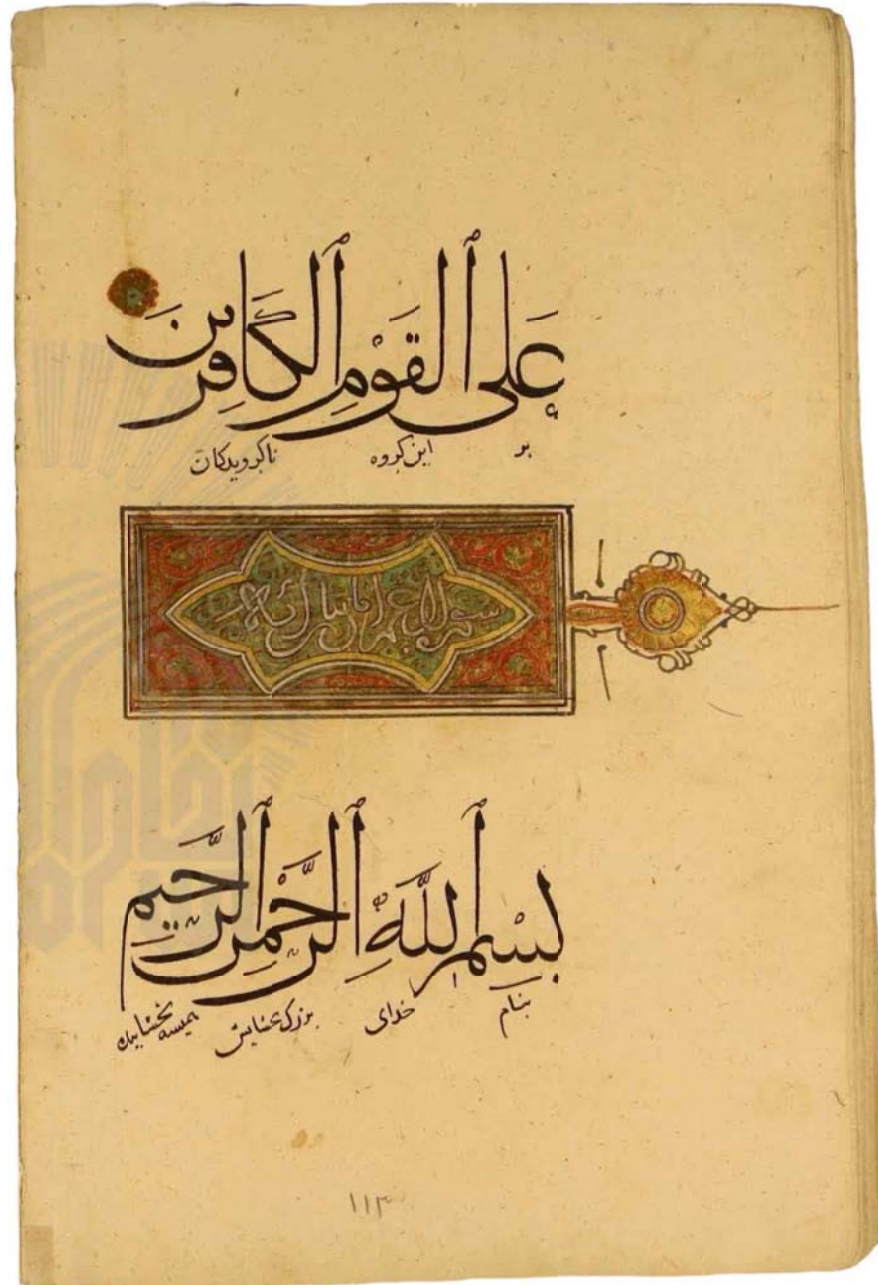 عَلَى ٱلْقَوْمِ ٱلْكَافِرِينَ
بر این کروه ناکرویدکان
سورة آل عمران
بِسْمِ ٱللَّهِ ٱلرَّحْمٰنِ ٱلرَّحِيمِ
بنام خدای بزرک بخشایش همیشه
١١٣